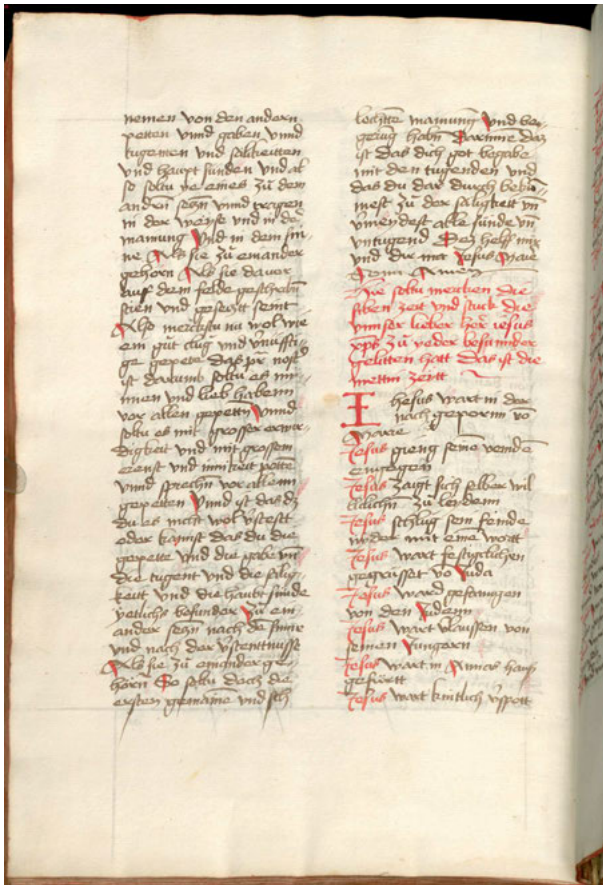 nemen von den andern
petten vnnd gaben vnnd
tugennen vnd sälikeitten
vnd haupt sunden vnd al
so soltu ye eines zů dem
andern sehn vnnd tragen
in der weyse vnd in der
manung Vnd in dem sin
ne Als sie zů einander
gehorn Als sie davor
auf dem felde geschribn
sten vnd gesetzt seint
Also merckstu nu wol wie
ein gůt clug vnd
ge gepete das pr̃ nost̃
ist darumb soltu es
innen vnd lieb habenn
vor allen gepettñ Vnnd
soltu es mit grosser erwir
digkeit vnd mit grossem
ernst vnd innikeit
vnnd sprechñ vor allenn
gepetten Vnnd ist das dz
du es nicht wol v̈stestt
oder kanst das du die
gepette vnd die gabe vñ
die tugent vnd die sälig
keitt vnd die haubt sunde
yetlichs besunder zů ein
ander sehñ nach dẽ sinne
vnd nach der v̈stentnusse
Als sie zů einander ge
hörñ So soltu doch die
ersten gemaine vnd sch
lechtte manung Vnd be
gerug habñ Darinne daz
ist das dich got begabe
mit den tugenden vnd
das du dar durch bekũ
mest zů der säligkeit vñ
v̈meidest alle sunde vñ
vntugend Dez helff mir
vnd dir Jesus
Amen
Hie soltu mercken die
siben zeit vnd stuck die
vnnser lieber her̃ iesus
xp̃s zů yeder besunder
gelitten hatt Das ist die
mettin zeitt
Ihesus wart in der
nach geporñn võ
Marie
Jesus gieng seinẽ veindẽ
engegen
Jesus zaigt sich selber wil
liklichñ zů leidenn
Jesus schlug sein feinde
nyder mit einẽ wortt
Jesus wart
gegrüsset võ Juda
Jesus ward gefanngen
von den Judenn
Jesus wart v̈laussen von
seinen Jungern
Jesus wart in Annas hauß
gefürtt
Jesus wart v̈spott